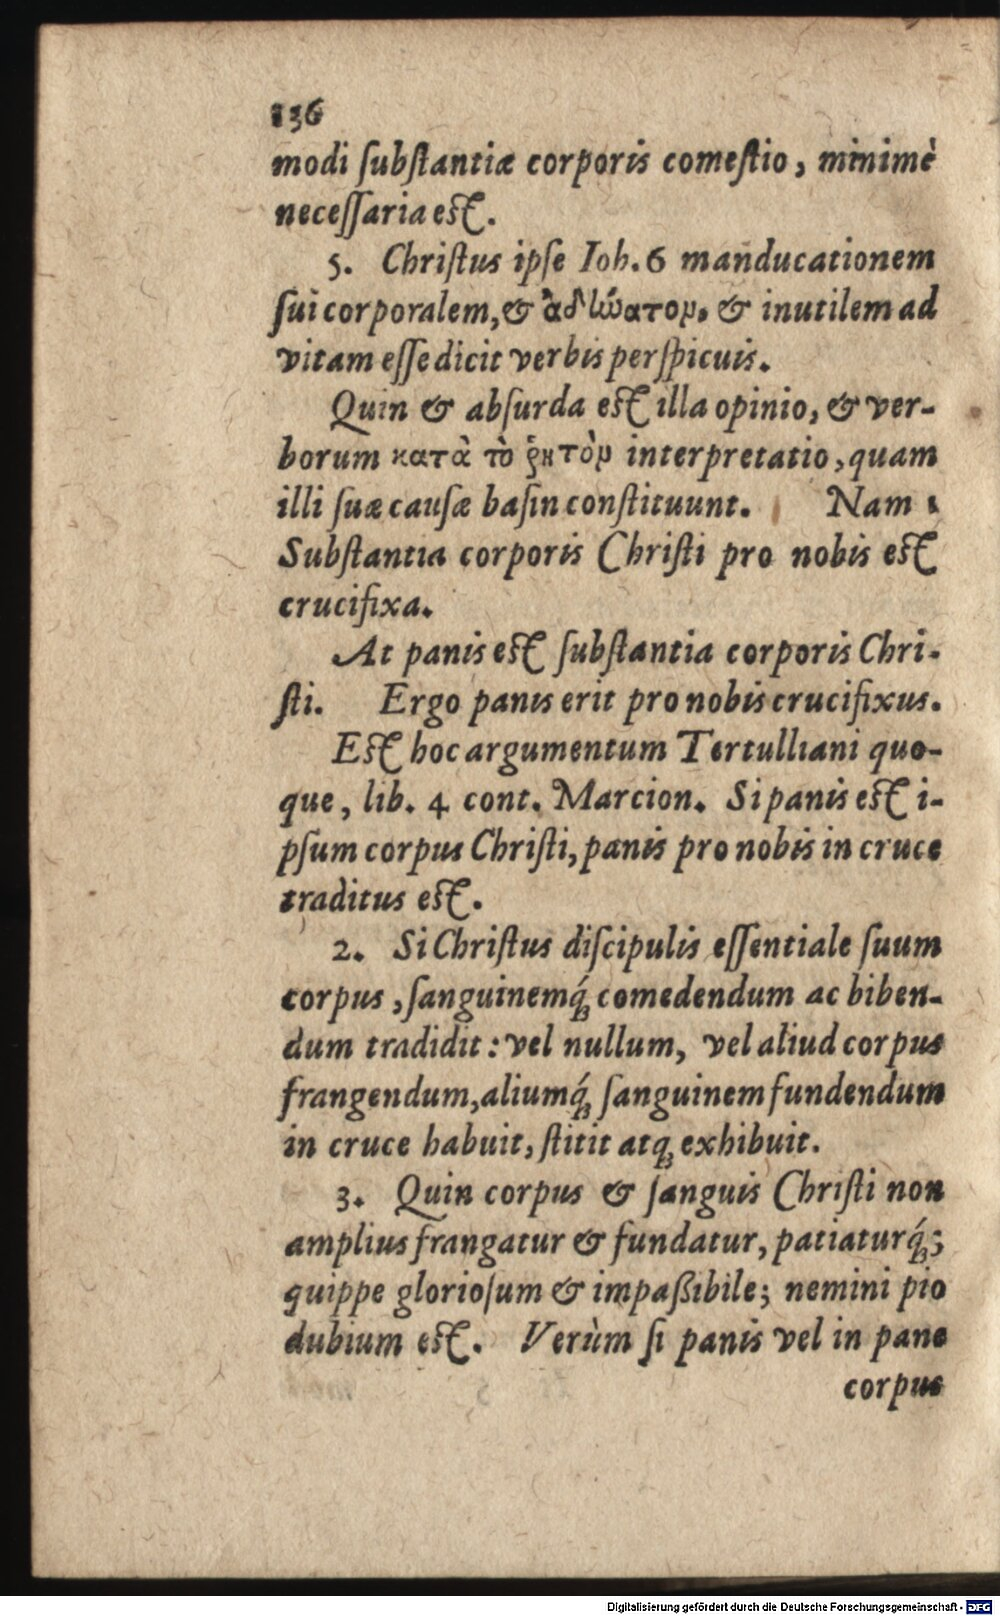 136
modi ſubſtantiæ corporis comeſtio, minimè
neceſſaria eſt.
5. Chriſtus ipſe Ioh. 6 manducationem
ſui corporalem, & ἀδύνατον, & inutilem ad
vitam eſſe dicit verbis perſpicuis.
Quin & abſurda eſt illa opinio, & ver-
borum κατὰ τὸ ῥητὸν interpretatio, quam
illi ſuæ cauſæ baſin conſtituunt. Nam 1
Subſtantia corporis Chriſti pro nobis eſt
crucifixa.
At panis eſt ſubſtantia corporis Chri-
ſti. Ergo panis erit pro nobis crucifixus.
Eſt hoc argumentum Tertulliani quo-
que, lib. 4 cont. Marcion. Si panis eſt i-
pſum corpus Chriſti, panis pro nobis in cruce
traditus eſt.
2. Si Chriſtus diſcipulis eſſentiale ſuum
corpus, ſanguinemq́ꝫ comedendum ac biben-
dum tradidit: vel nullum, vel aliud corpus
frangendum, aliumq́ꝫ ſanguinem fundendum
in cruce habuit, ſtitit atqꝫ exhibuit.
3. Quin corpus & ſanguis Chriſti non
amplius frangatur & fundatur, patiaturq́ꝫ;
quippe glorioſum & impaßibile; nemini pio
dubium eſt. Verùm ſi panis vel in pane
corpus
Digitalisierung gefördert durch die Deutsche Forschungsgemeinschaft - DFG